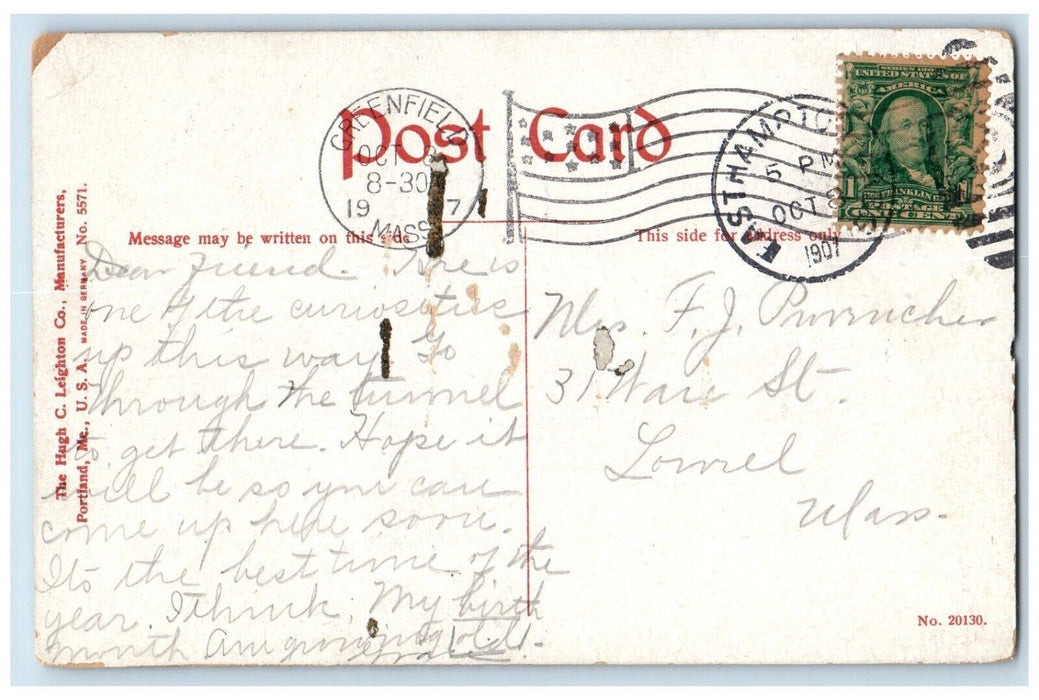 Post Card
GREENFIELD
OCT 8
8-30
19 7
MASS.
EASTHAMPTO
5 PM
OCT 8
1907
SERIES 1902
UNITED STATES OF
AMERICA
1 1
FRANKLIN
ONE CENT
Message may be written on this side
This side for address only
The Hugh C. Leighton Co., Manufacturers,
Portland, Me., U. S. A. MADE IN GERMANY No. 5571.
Dear Friend. Here is
one of the curiosities
up this way. Go
through the tunnel
to get there. Hope it
will be so you can
come up here soon.
Its the best time of the
year. I think. My birth
month Am growing old.
Mrs. F. J.
31 Ware St.
Lowel
Mass.
No. 20130.